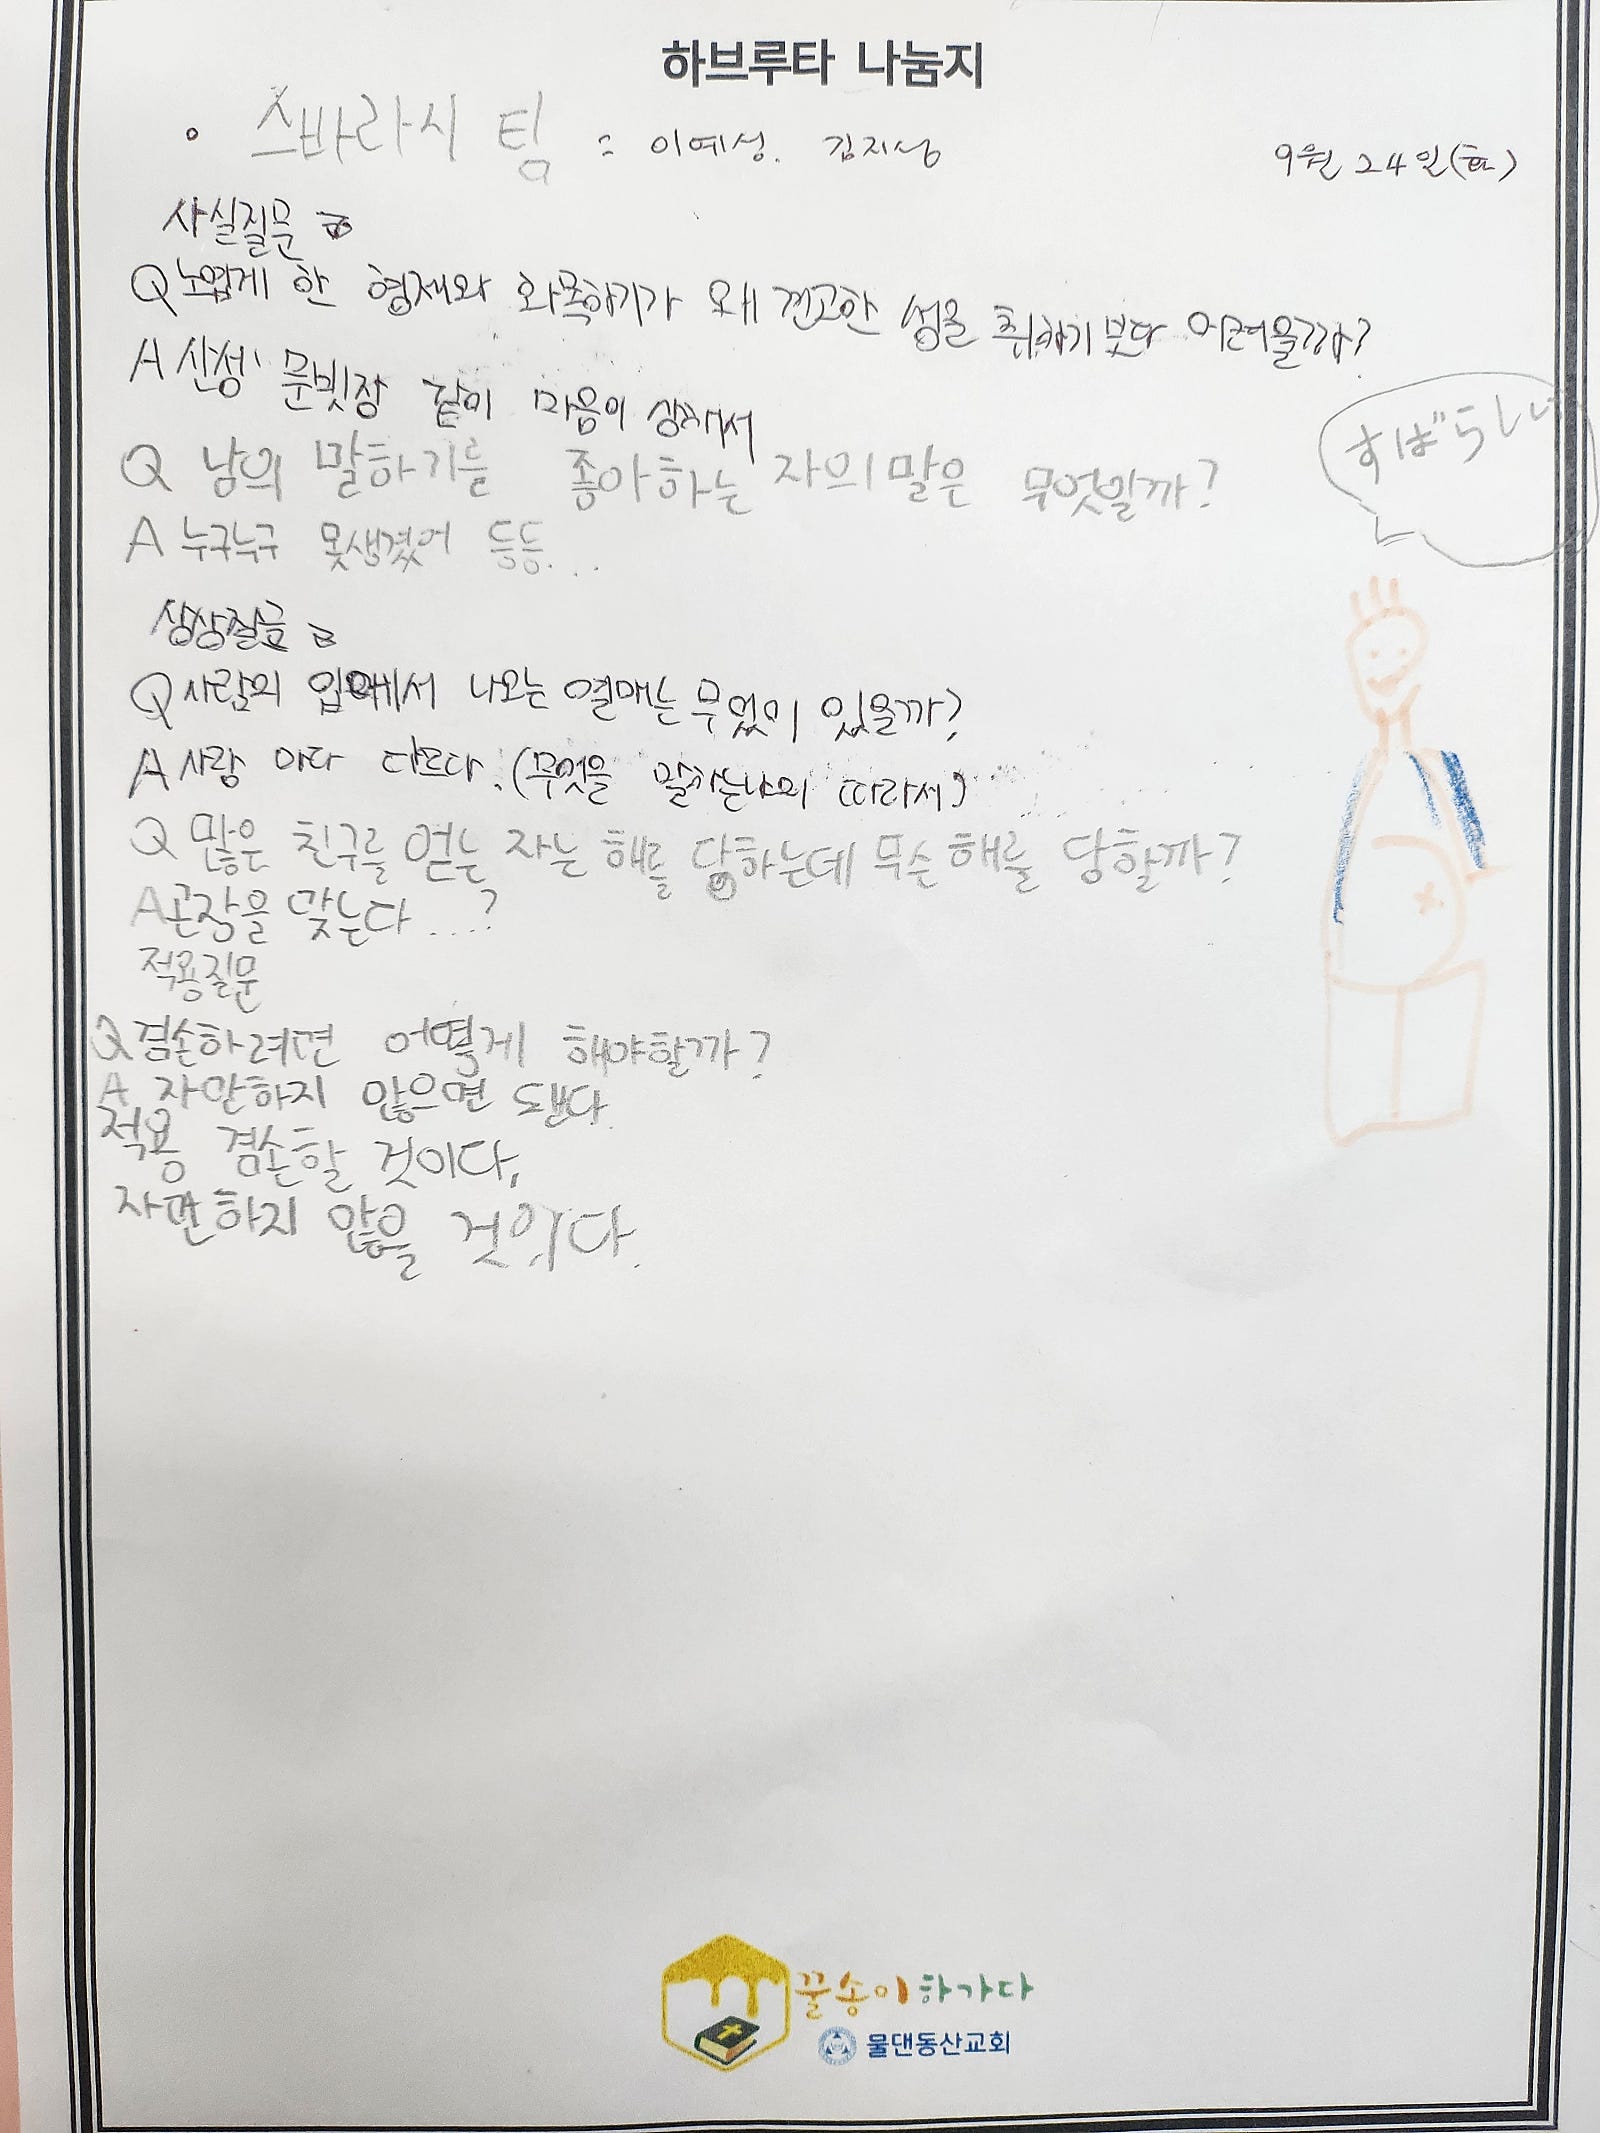 하브루타 나눔지
스바라시 팀 : 이예성. 김지성
9월 24일(화)
사실질문
Q 노엽게 한 형제와 화목하기가 왜 견고한 성을 취하기 보다 어려울까?
A 산성 문빗장 같이 마음이 상해서
すばらしい
Q 남의 말하기를 좋아하는 자의 말은 무엇일까?
A 누구누구 못생겼어 등등...
상상질문
Q 사람의 입에서 나오는 열매는 무엇이 있을까?
A 사람 마다 다르다. (무엇을 말하는냐의 따라서)
Q 많은 친구를 얻는 자는 해를 당하는데 무슨 해를 당할까?
A 곤장을 맞는다....?
적용질문
Q 겸손하려면 어떻게 해야할까?
A 자만하지 않으면 됀다.
적용 겸손할 것이다.
자만하지 않을 것이다.
꿀송이 하가다
물댄동산교회